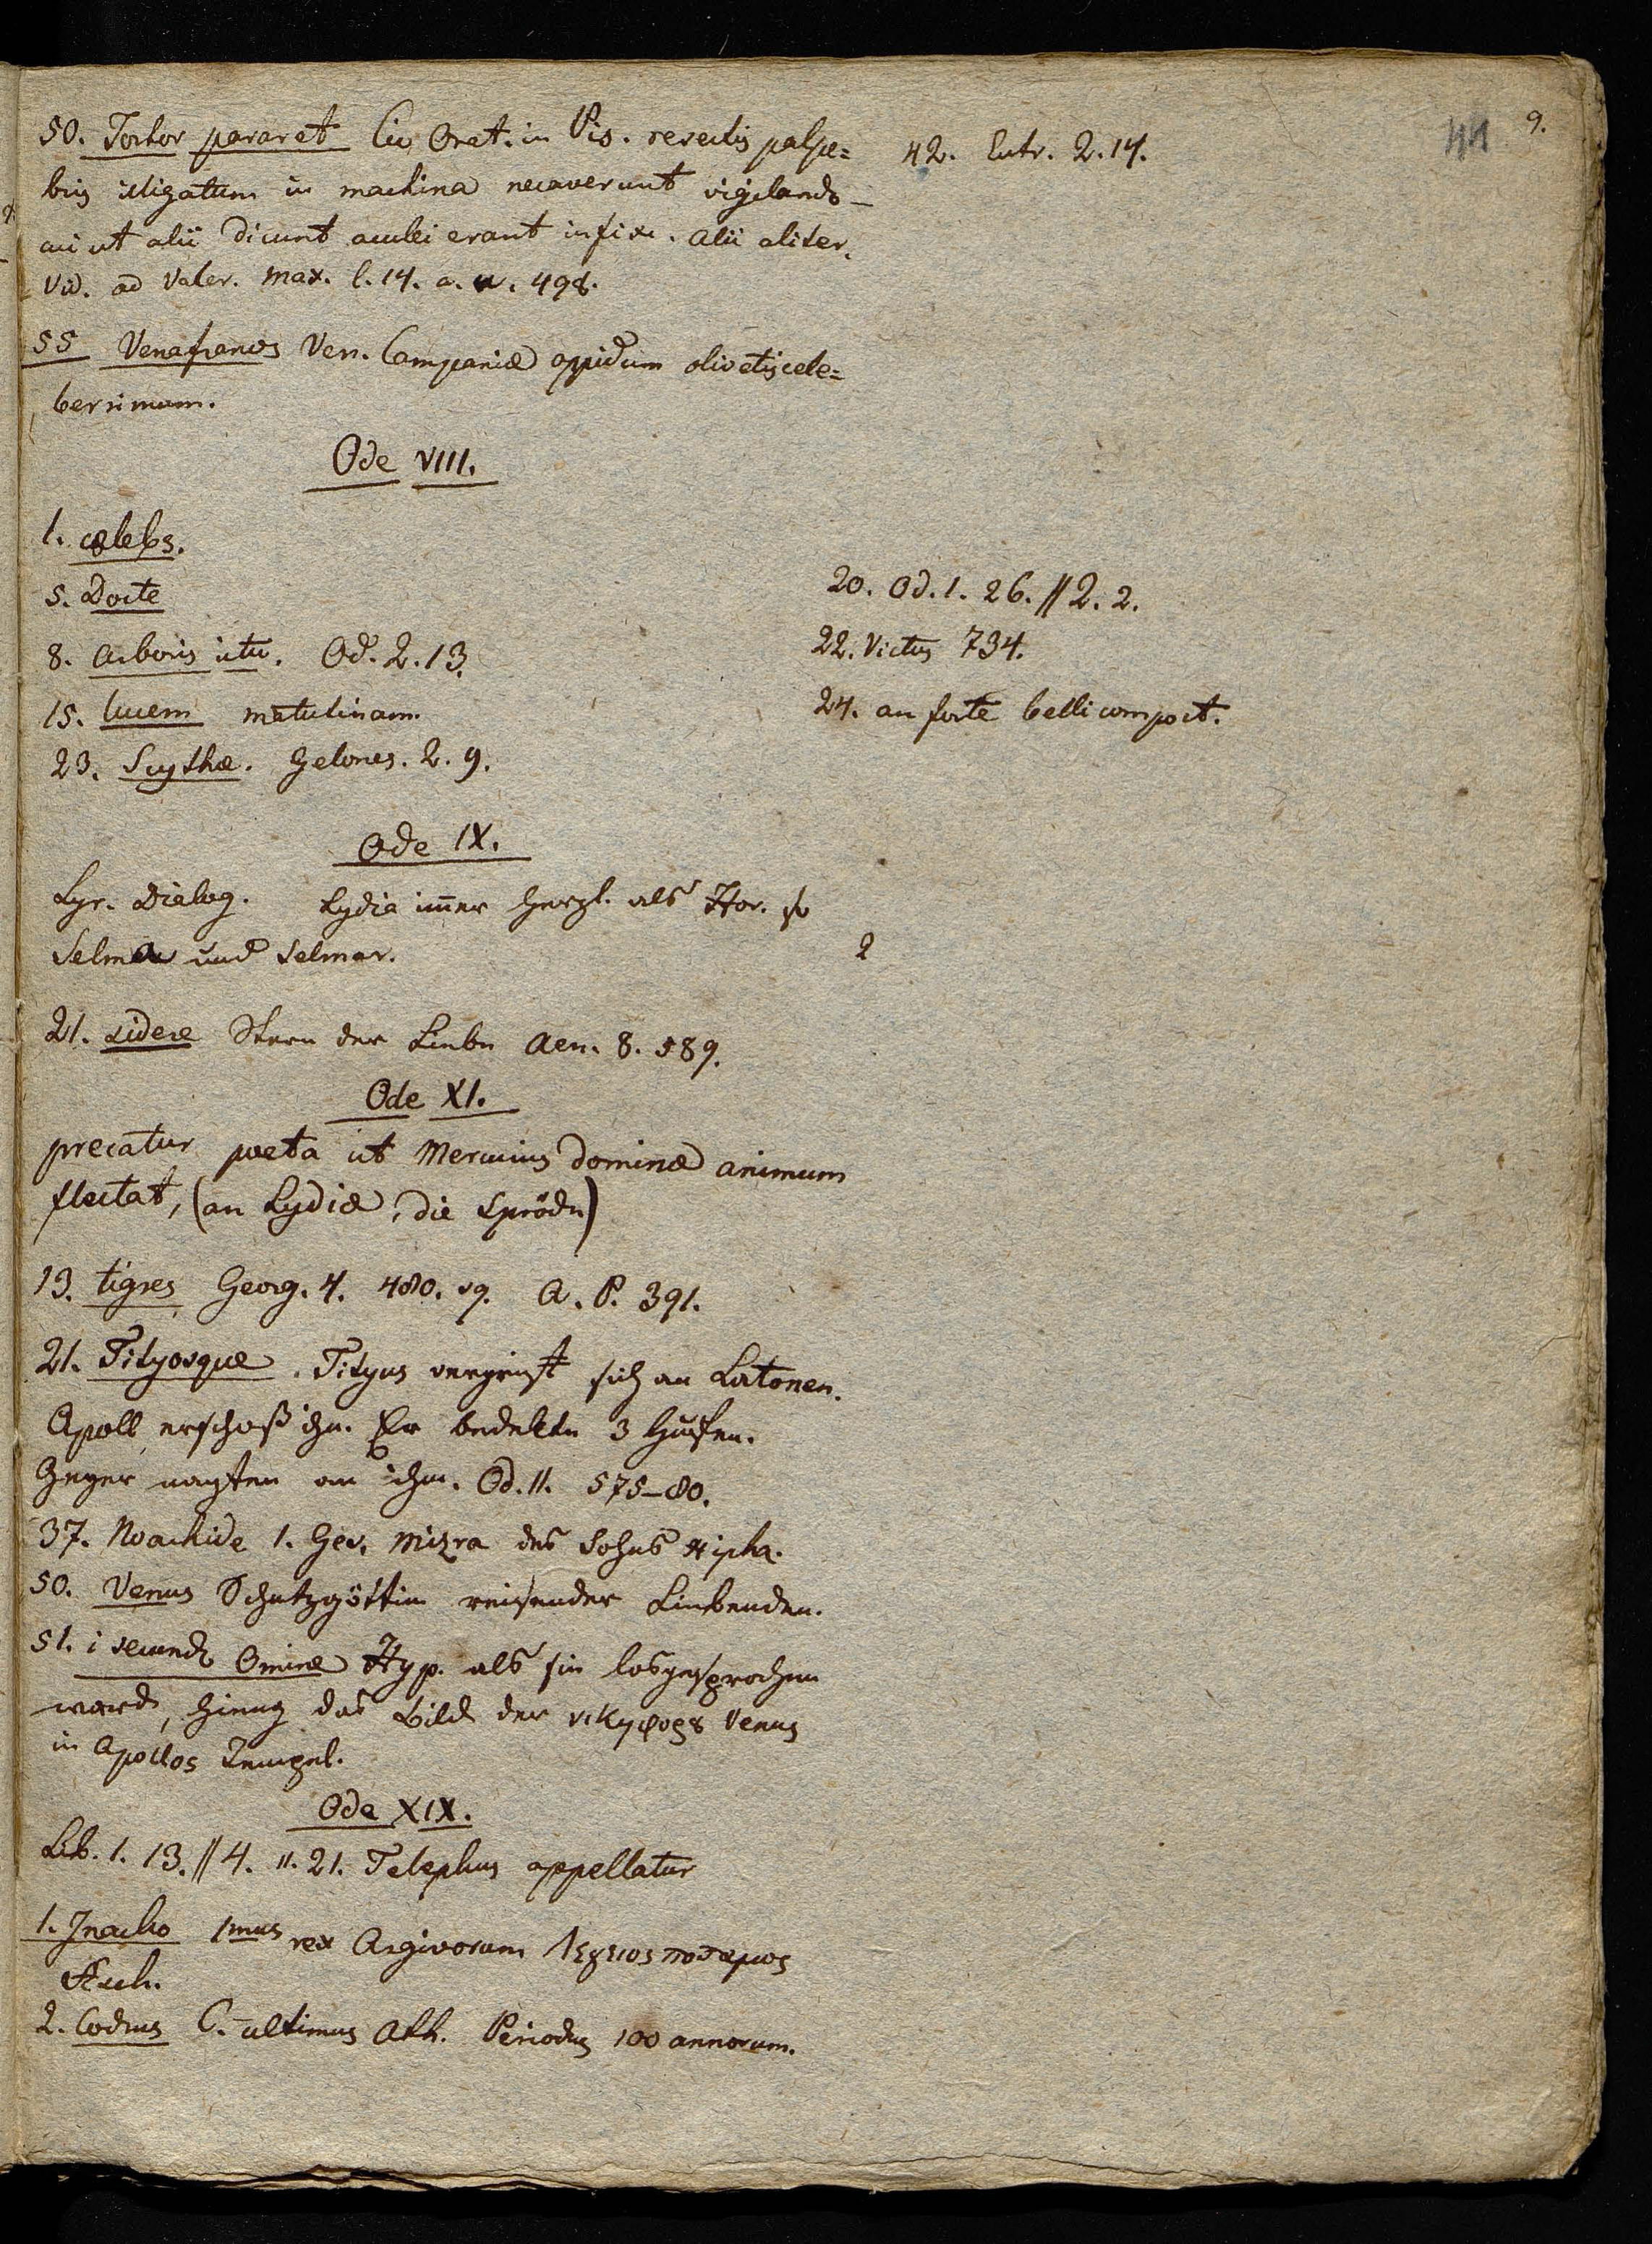 9.
44
50. Tortor pararet Cic Orat. in Pis. resectis palpe=
bris illigatum in machina necaverunt vigilando –
cui ut alii dicunt aculei erant infixi. alii aliter.
Vid. ad Valer. Max. l. 14. a. u. 498.
55 Venafranos Ven. Campaniæ oppidum olivetis cele=
berrimum.
42. Eutr. 2. 14.
Ode VIII.
1. cælebs.
5. Docte
8. Arboris ictu. Od. 2. 13.
15. lucem matutinam.
23. Scythæ. Gelones. 2. 9.
20. Od. 1. 26. // 2. 2.
22. Victus 734.
24. an forte belli compoct.
Ode IX.
Lyr. Dialog. Lydia im̄er herzl. als Hor. so
Selma und Selmar.
2
21. sidere Stern der Liebe Aen. 8. 589.
Ode XI.
precatur poeta ut Mercurius dominæ animum
flectat, (an Lydiæ, die Spröde)
13. tigres Georg. 4. 480. sq. A. P. 391.
21. Tityosque. Tityus vergreift sich an Latonen.
Apoll erschoß ihn. Er bedekte 3 Hufen.
Geyer nagten an ihm. Od. 11. 575–80.
37. Noachide 1. Ges. Mizra des Sohns Hipha.
50. Venus Schutzgöttin reisender Liebenden.
51. i secundo Omine Hyp. als sie losgesprochen
ward, hieng das Bild der νικηφορȣ Venus
in Apollos Tempel.
Ode XIX.
Lib. 1. 13. // 4. 11. 21. Telephus appellatur
1. Inacho 1mus rex Argivorum ποταμος
Aesch.
2. Codrus C. ultimus Ath. Periodus 100 annorum.